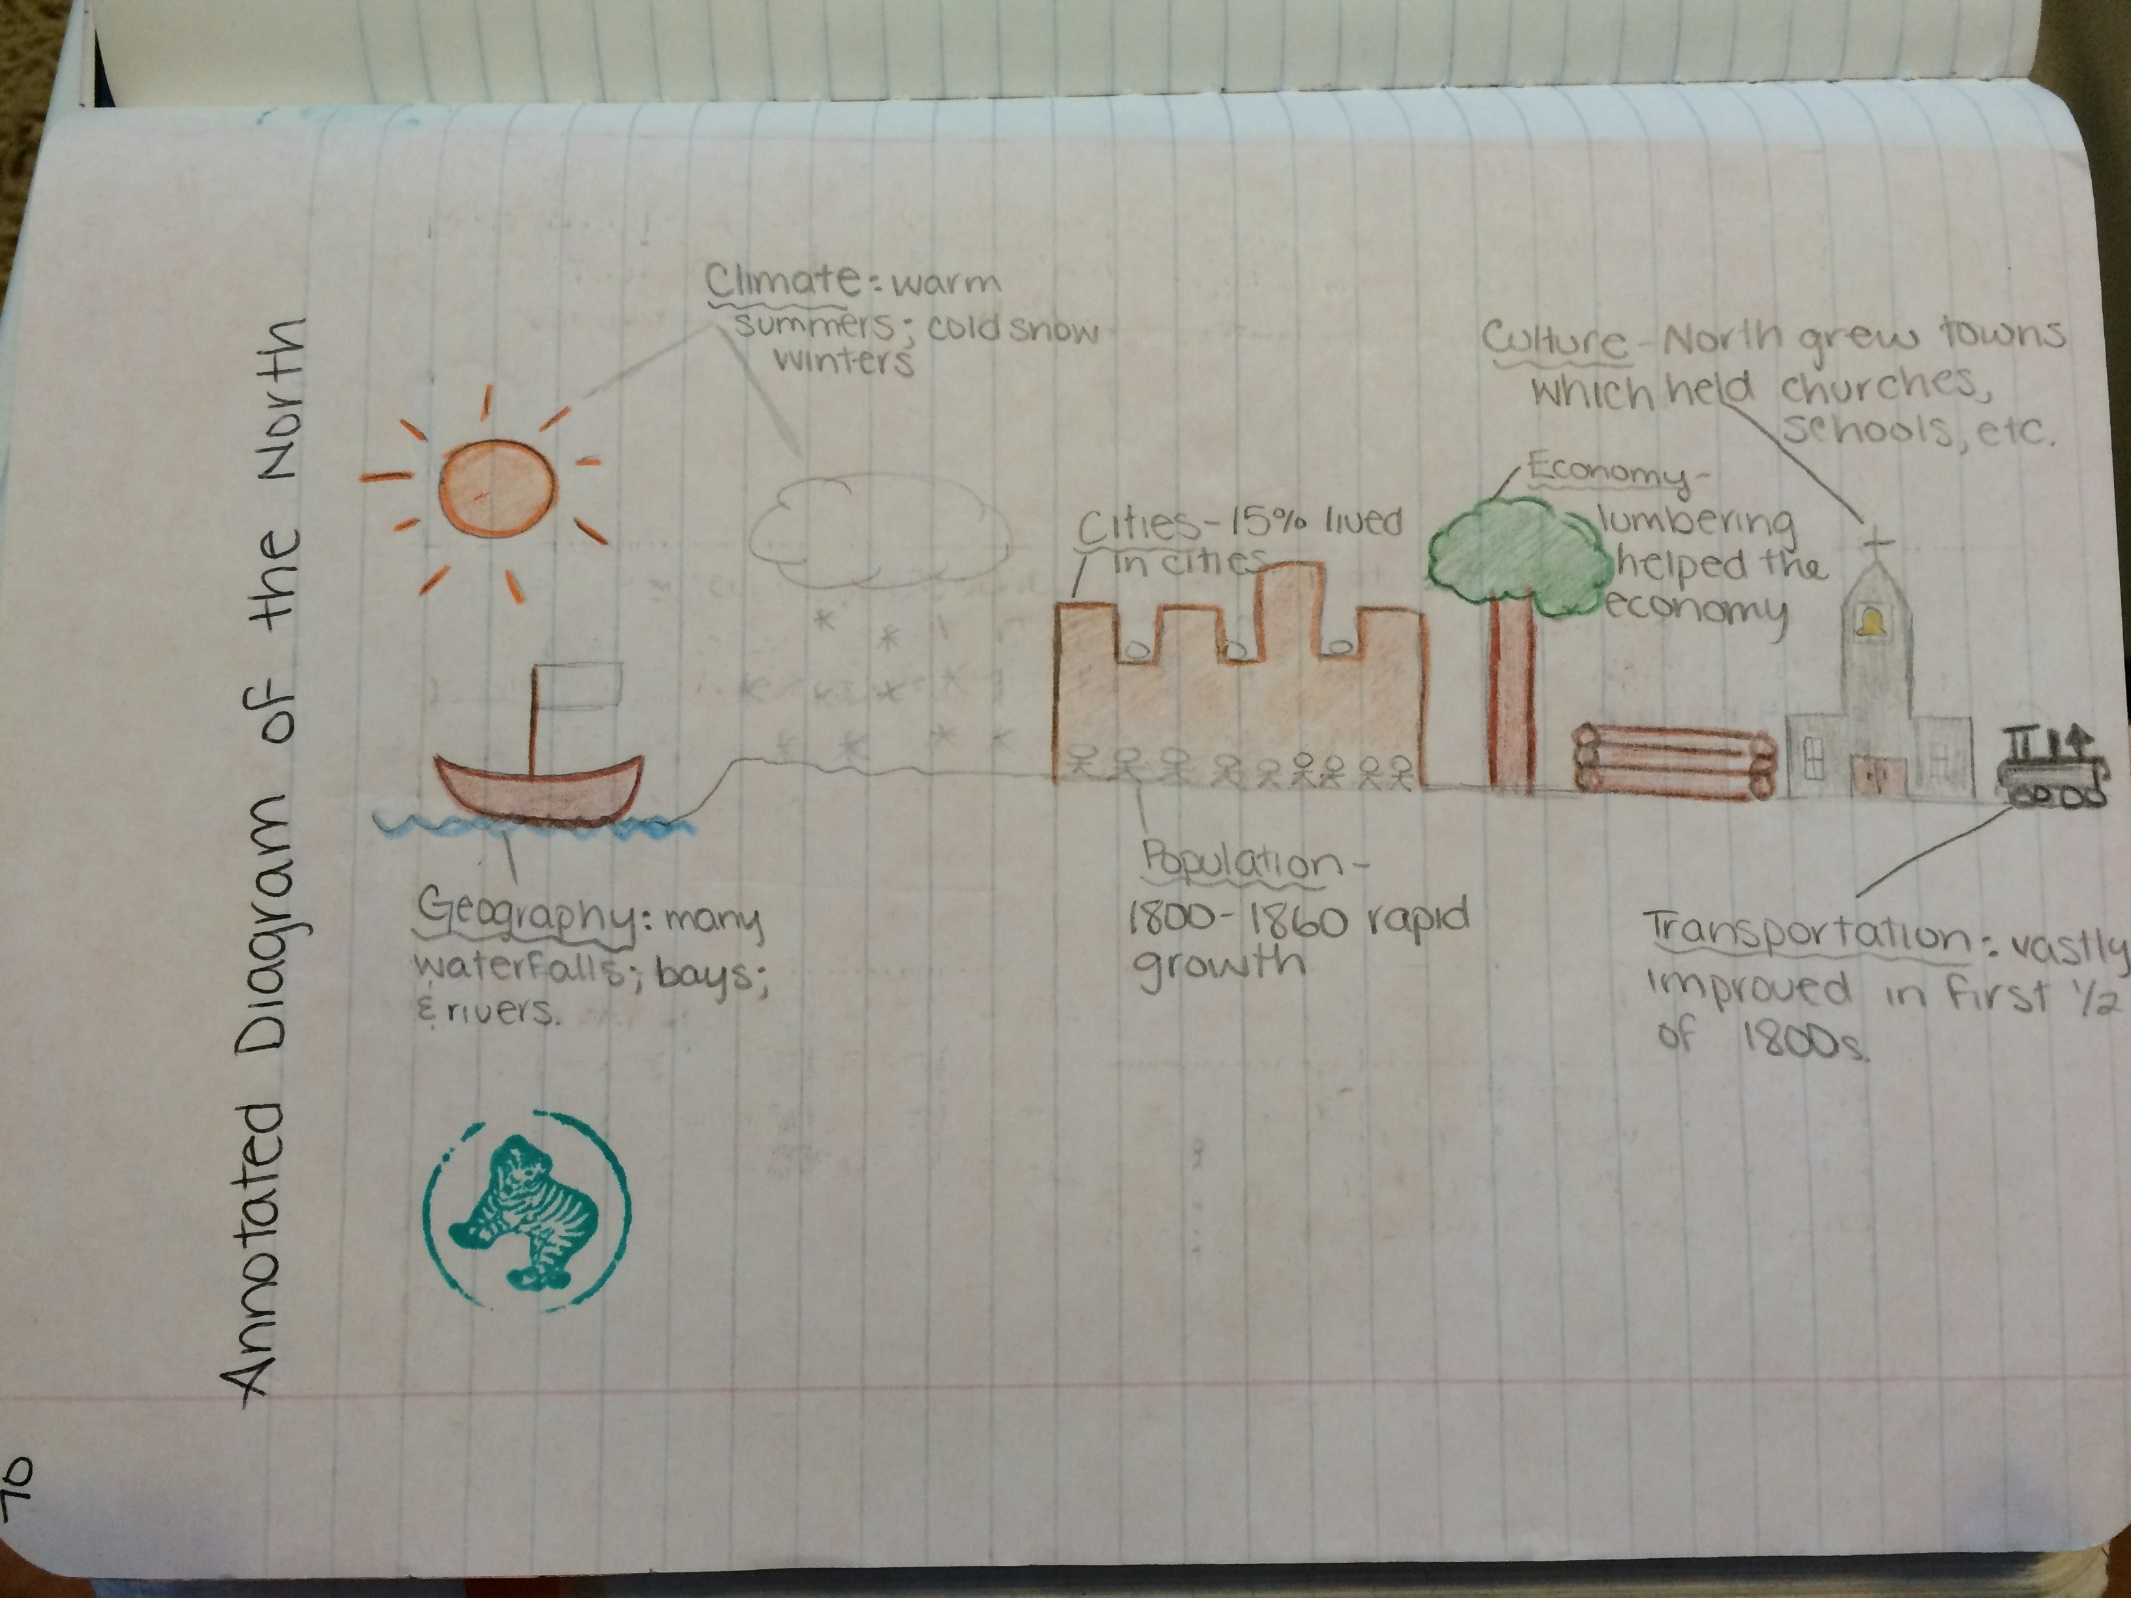 Annotated Diagram of the North
Climate: warm
summers; cold snow
winters
Culture - North grew towns
which held churches,
schools, etc.
Economy -
lumbering
helped the
economy
Cities - 15% lived
in cities
Geography: many
waterfalls; bays;
& rivers.
Population -
1800-1860 rapid
growth
Transportation: vastly
improved in first 1/2
of 1800s.
70